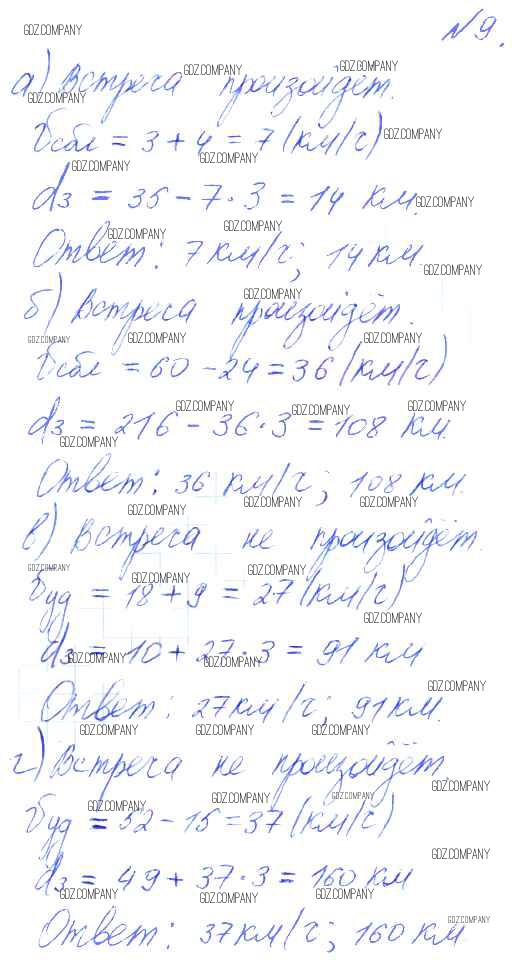 № 9.
а) Встреча произойдёт.
vсбл = 3 + 4 = 7 (км/ч)
d3 = 35 - 7 · 3 = 14 км.
Ответ: 7 км/ч; 14 км.
б) Встреча произойдёт.
vсбл = 60 - 24 = 36 (км/ч)
d3 = 216 - 36 · 3 = 108 км.
Ответ: 36 км/ч; 108 км.
в) Встреча не произойдёт.
vуд = 18 + 9 = 27 (км/ч)
d3 = 10 + 27 · 3 = 91 км
Ответ: 27 км/ч; 91 км.
г) Встреча не произойдёт.
vуд = 52 - 15 = 37 (км/ч)
d3 = 49 + 37 · 3 = 160 км
Ответ: 37 км/ч; 160 км
GDZ.COMPANY